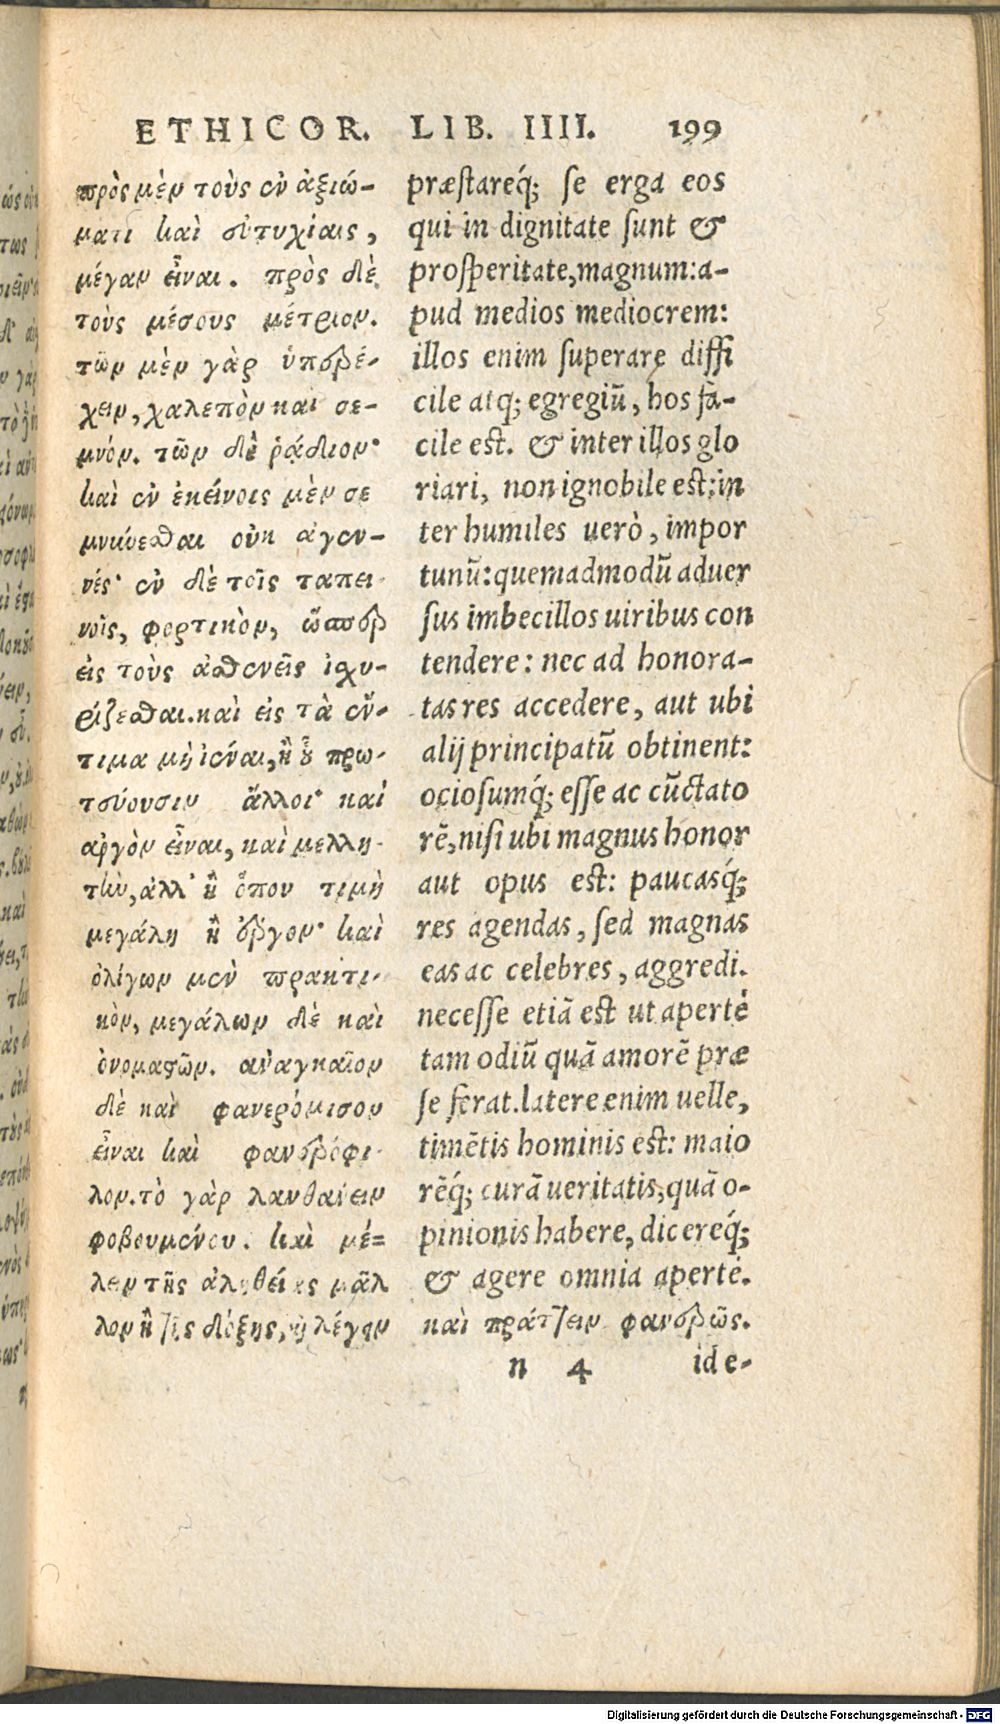 ETHICOR. LIB. IIII. 199
πρὸς μὲν τοὺς ἐν ἀξιώ-
ματι καὶ εὐτυχίαις,
μέγαν εἶναι. πρὸς δὲ
τοὺς μέσους μέτριον.
τῶν μὲν γὰρ ὑπερέ-
χειν, χαλεπὸν καὶ σε-
μνόν. τῶν δὲ ῥᾴδιον·
καὶ ἐν ἐκείνοις μὲν σε
μνύνεσθαι οὐκ ἀγεν-
νές· ἐν δὲ τοῖς ταπει-
νοῖς, φορτικὸν, ὥσπερ
εἰς τοὺς ἀσθενεῖς ἰσχυ-
ρίζεσθαι. καὶ εἰς τὰ ἔν-
τιμα μὴ ἰέναι, ἢ οὗ πρω-
τεύουσιν ἄλλοι· καὶ
ἀργὸν εἶναι, καὶ μελλη-
τὴν, ἀλλ' ἢ ὅπου τιμὴ
μεγάλη ἢ ἔργον· καὶ
ὀλίγων μὲν πρακτι-
κὸν, μεγάλων δὲ καὶ
ὀνομαστῶν. ἀναγκαῖον
δὲ καὶ φανερόμισον
εἶναι καὶ φανερόφι-
λον. τὸ γὰρ λανθάνειν
φοβουμένου. καὶ μέ=
λειν τῆς ἀληθείας μᾶλ
λον ἢ τῆς δόξης, καὶ λέγειν
præstareq́; se erga eos
qui in dignitate sunt &
prosperitate, magnum: a-
pud medios mediocrem:
illos enim superare diffi
cile atq; egregiũ, hos fa-
cile est. & inter illos glo
riari, non ignobile est: in
ter humiles uerò, impor
tunũ: quemadmodũ aduer
sus imbecillos uiribus con
tendere: nec ad honora-
tas res accedere, aut ubi
alij principatũ obtinent:
ociosumq́; esse ac cũctato
rẽ, nisi ubi magnus honor
aut opus est: paucasq́;
res agendas, sed magnas
eas ac celebres, aggredi.
necesse etiã est ut apertè
tam odiũ quã amorẽ præ
se ferat. latere enim uelle,
timẽtis hominis est: maio
rẽq́; curã ueritatis, quã o-
pinionis habere, dicereq́;
& agere omnia apertè.
καὶ πράττειν φανερῶς.
n 4 ide-
Digitalisierung gefördert durch die Deutsche Forschungsgemeinschaft - DFG